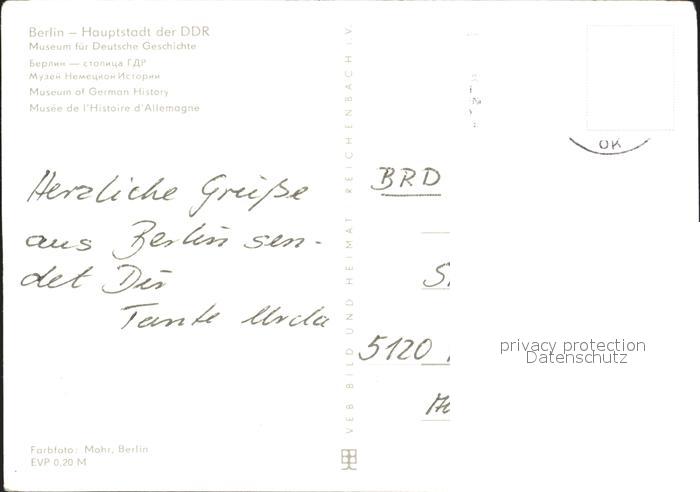 Berlin – Hauptstadt der DDR
Museum für Deutsche Geschichte
Берлин — столица ГДР
Музей Немецкой Истории
Museum of German History
Musée de l'Histoire d'Allemagne
Herzliche Grüße
aus Berlin sen-
det Dir
Tante
Farbfoto: Mohr, Berlin
EVP 0,20 M
VEB BILD UND HEIMAT REICHENBACH i.V.
OK
BRD
5120
privacy protection
Datenschutz